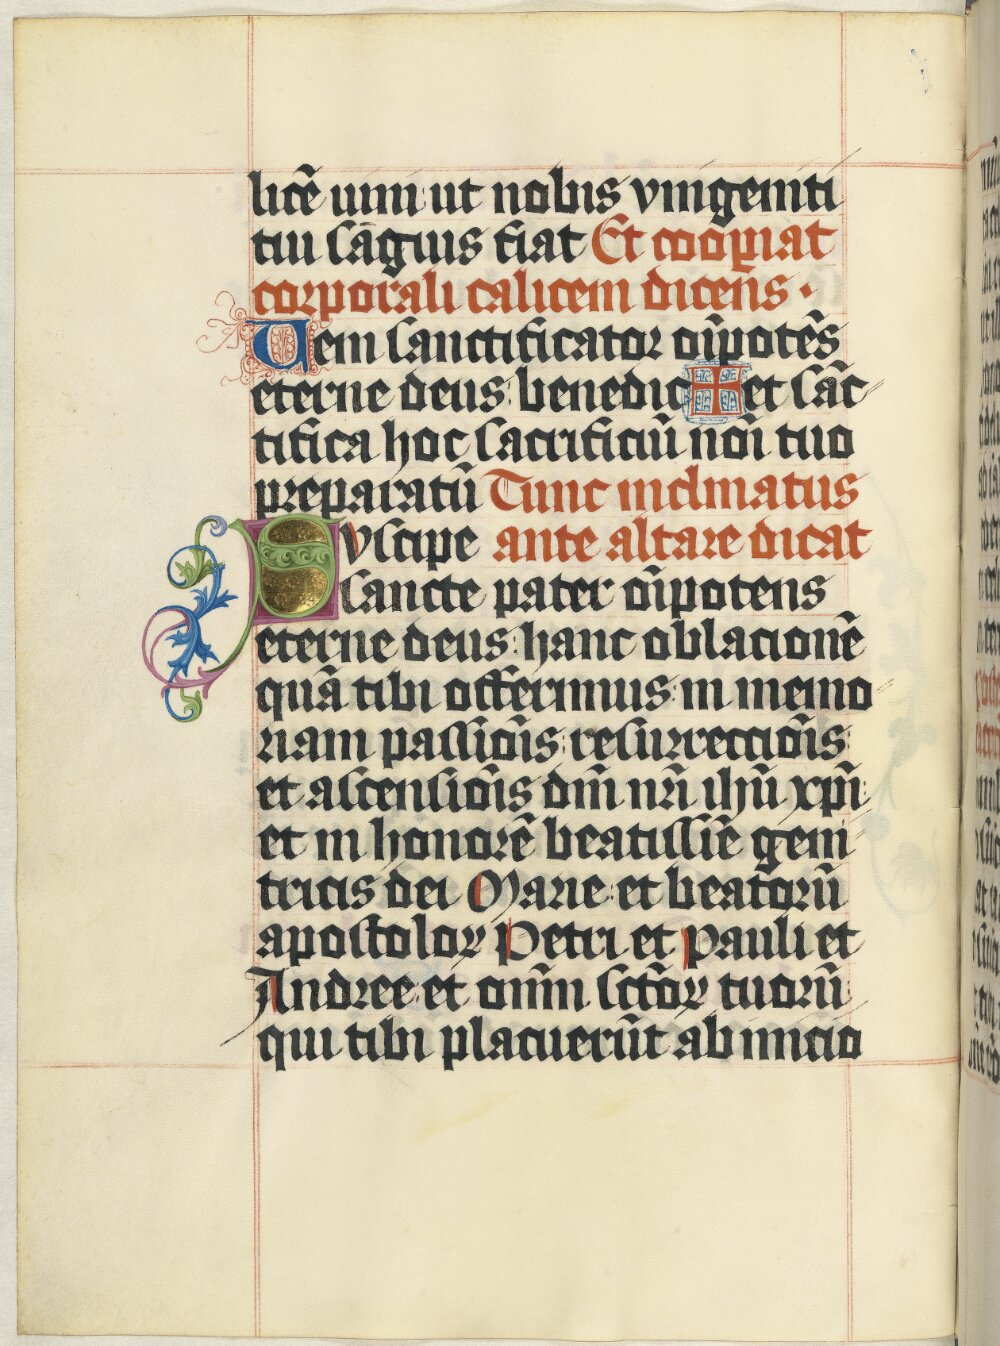 licē uini ut nobis vnigeniti
tui sāguis fiat Et coopiat
corporali calicem dicens ·
Ueni sanctificator oīpotēs
eterne deus benedic ✠ et sāc
tifica hoc sacrificiū noī tuo
preparatū Tunc inclinatus
Suscipe ante altare dicat
sancte pater oīpotens
eterne deus: hanc oblacionē
quā tibi offerimus: in memo
riam passiōis: resurrectiōis:
et ascensiōis dm̄ nrī ihū xpī:
et in honorē beatissīē geni
tricis dei Marie: et beatorū
apostoloꝝ Petri et Pauli et
Andree: et om̄m sctōꝝ tuorū:
qui tibi placuerūt ab inicio